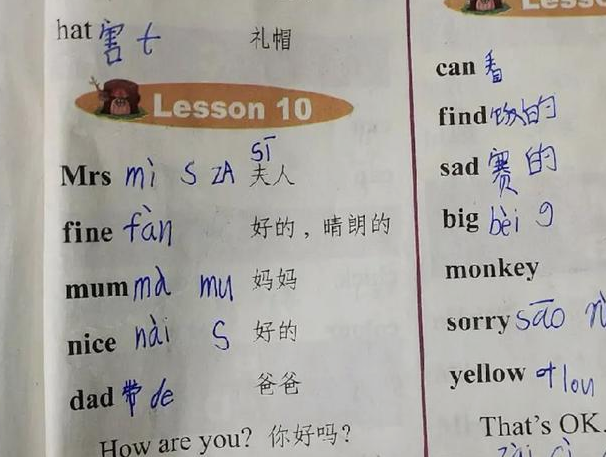 hat 害 t 礼帽
Lesson 10
sī
Mrs mì S ZA 夫人
fine fàn 好的，晴朗的
mum mà mu 妈妈
nice nài S 好的
dad 带 de 爸爸
How are you? 你好吗?
Lesso
can 看
find 的
sad 赛 的
big bèi g
monkey
sorry sāo
yellow lou
That's OK.